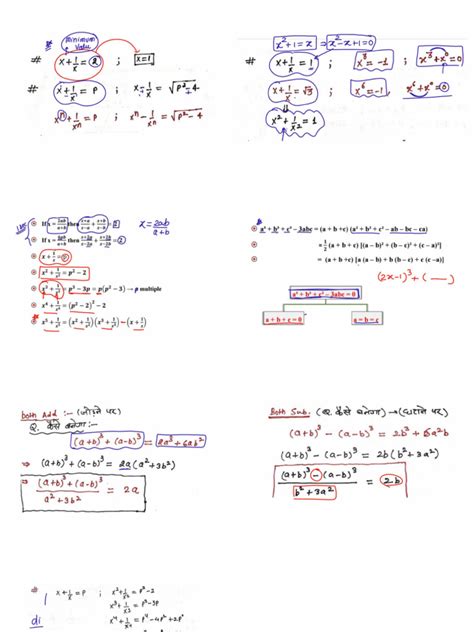 minimum
value
# x + 1/x = 2 ; x = 1
# x + 1/x = P ; x - 1/x = √(P² - 4)
xⁿ + 1/xⁿ = P ; xⁿ - 1/xⁿ = √(P² - 4)
x² + 1 = x ⇒ x² - x + 1 = 0
# x + 1/x = 1 ; x³ = -1 ; x³ + x⁰ = 0
x + 1/x = √3 ; x⁶ = -1 ; x⁶ + x⁰ = 0
⇓
x² + 1/x² = 1
If x = 2ab/(a+b) then (x+a)/(x-a) + (x+b)/(x-b) = 2
x = 2ab/(a+b)
x² + 1/x² = p² - 2
x³ + 1/x³ = p³ - 3p = p(p² - 3) → p multiple
x⁴ + 1/x⁴ = (p² - 2)² - 2
x⁵ + 1/x⁵ = (x² + 1/x²)(x³ + 1/x³) - (x + 1/x)
a³ + b³ + c³ - 3abc = (a + b + c) (a² + b² + c² - ab - bc - ca)
= 1/2 (a + b + c) [(a - b)² + (b - c)² + (c - a)²]
= (a + b + c) [a (a - b) + b (b - c) + c (c - a)]
(2x-1)³ + ( __ )
a³ + b³ + c³ - 3abc = 0
a + b + c = 0
a = b = c
Both Add :- (जोड़ने पर)
Q. कैसे बनेगा :-
(a+b)³ + (a-b)³ = 2a³ + 6ab²
⇒ (a+b)³ + (a-b)³ = 2a(a² + 3b²)
⇒ ((a+b)³ + (a-b)³)/(a² + 3b²) = 2a
Both Sub. (Q. कैसे बनेगा) → (घटाने पर)
(a+b)³ - (a-b)³ = 2b³ + 6a²b
(a+b)³ - (a-b)³ = 2b(b² + 3a²)
((a+b)³ - (a-b)³)/(b² + 3a²) = 2b
⇒ x + 1/x = P ; x² + 1/x² = P² - 2
x³ + 1/x³ = P³ - 3P
x⁴ + 1/x⁴ = P⁴ - 4P² + 2P⁰
di